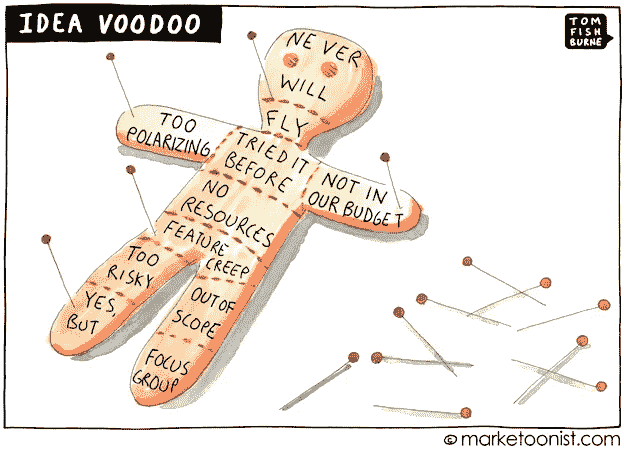 IDEA VOODOO
TOM
FISH
BURNE
NEVER
WILL
FLY
TOO
POLARIZING
TRIED IT
BEFORE
NOT IN
OUR BUDGET
NO
RESOURCES
FEATURE
CREEP
TOO
RISKY
YES,
BUT
OUT OF
SCOPE
FOCUS
GROUP
© marketoonist.com